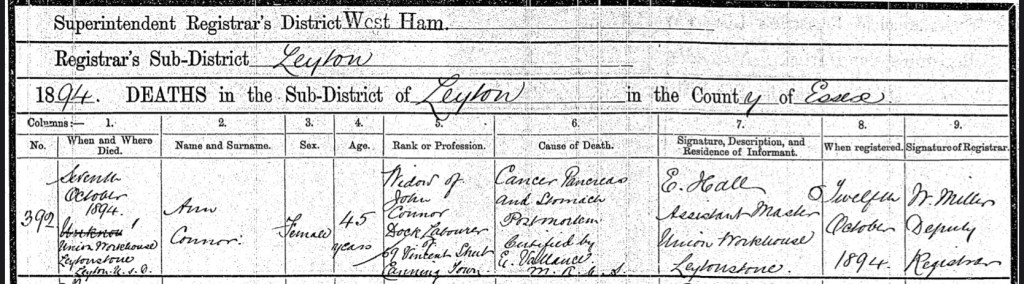 Superintendent Registrar's District West Ham.
Registrar's Sub-District Leyton
1894. DEATHS in the Sub-District of Leyton in the County of Essex.
Columns:— 1. 2. 3. 4. 5. 6. 7. 8. 9.
No. When and Where Died. Name and Surname. Sex. Age. Rank or Profession. Cause of Death. Signature, Description, and Residence of Informant. When registered. Signature of Registrar.
392
Seventh
October
1894.
Union Workhouse
Leytonstone
Leyton U.S.D.
Ann
Connor.
Female
45
years
Widow of
John
Connor
Dock Labourer
of
69 Vincent Street
Canning Town.
Cancer Pancreas
and Stomach
Postmortem
Certified by
E. Vallance
M.R.C.S.
E. Hall
Assistant Master
Union Workhouse
Leytonstone.
Twelfth
October
1894.
W. Miller
Deputy
Registrar